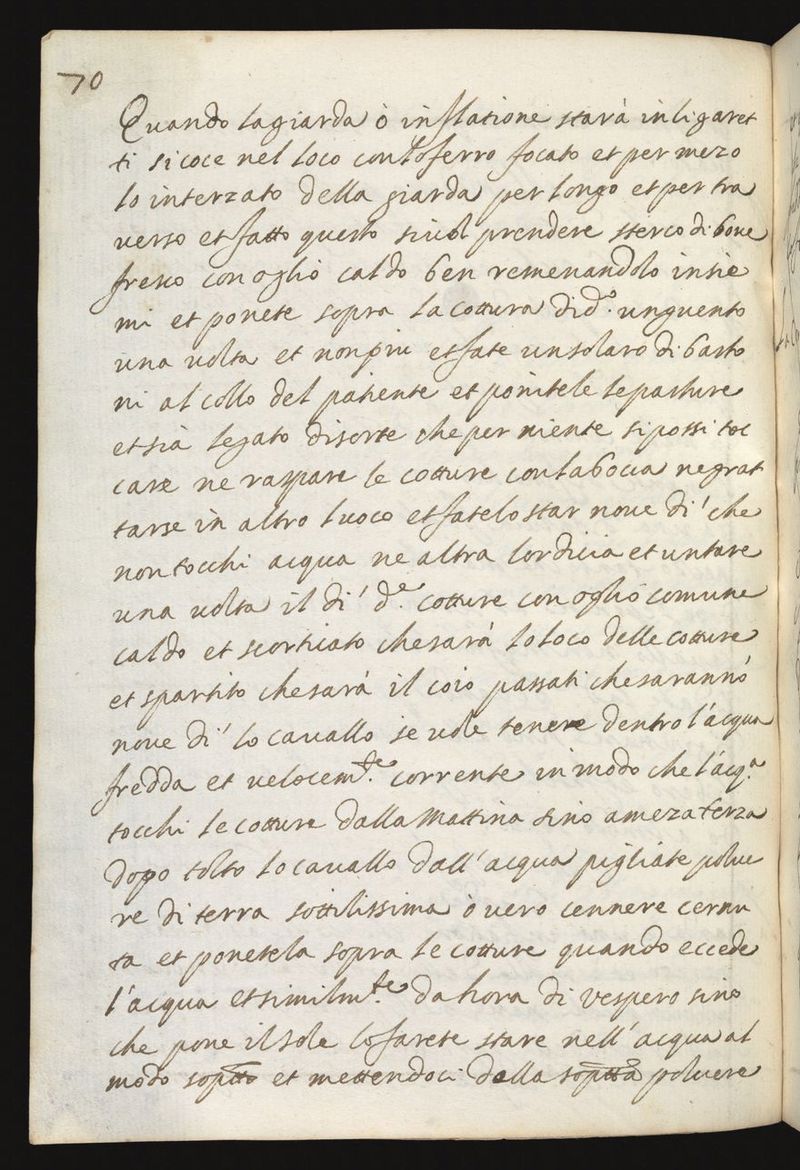 70
Quando lagiarda ò inflatione starà inligaret
ti si coce nel loco conloferro focato et per mezo
lo interzato della giarda per longo et per tra
verso et fatto questo si vol prendere sterco di bove
fresco con oglio caldo ben remenandolo insie
mi et ponete sopra la cottura di d.º unguento
una volta et non più et fate un solaro di basto
ni al collo del patiente et ponitele le pasture
et sia legato di sorte che per niente si possi toc
care ne raspare le cotture con la bocca ne grat
tarse in altro luoco et fatelo star nove di' che
non tocchi acqua ne altra lordicia et untare
una volta il di' d.e cotture con oglio comune
caldo et scorticato che sarà lo loco delle cotture
et spartito che sarà il coio passati che sarannò
nove di' lo cavallo se vole tenere dentro l'acqua
fredda et velocem.te corrente in modo che l'acq.a
tocchi le cotture dalla Mattina sino a meza terza
dopo tolto lo cavallo dall'acqua pigliate polve
re di terra sottilissima ò vero cennere cernu
ta et ponetela sopra le cotture quando eccede
l'acqua et similm.te da hora di vespero sino
che pone il sole lo farete stare nell'acqua al
modo sop.tto et mettendoci della sop.tta polvere